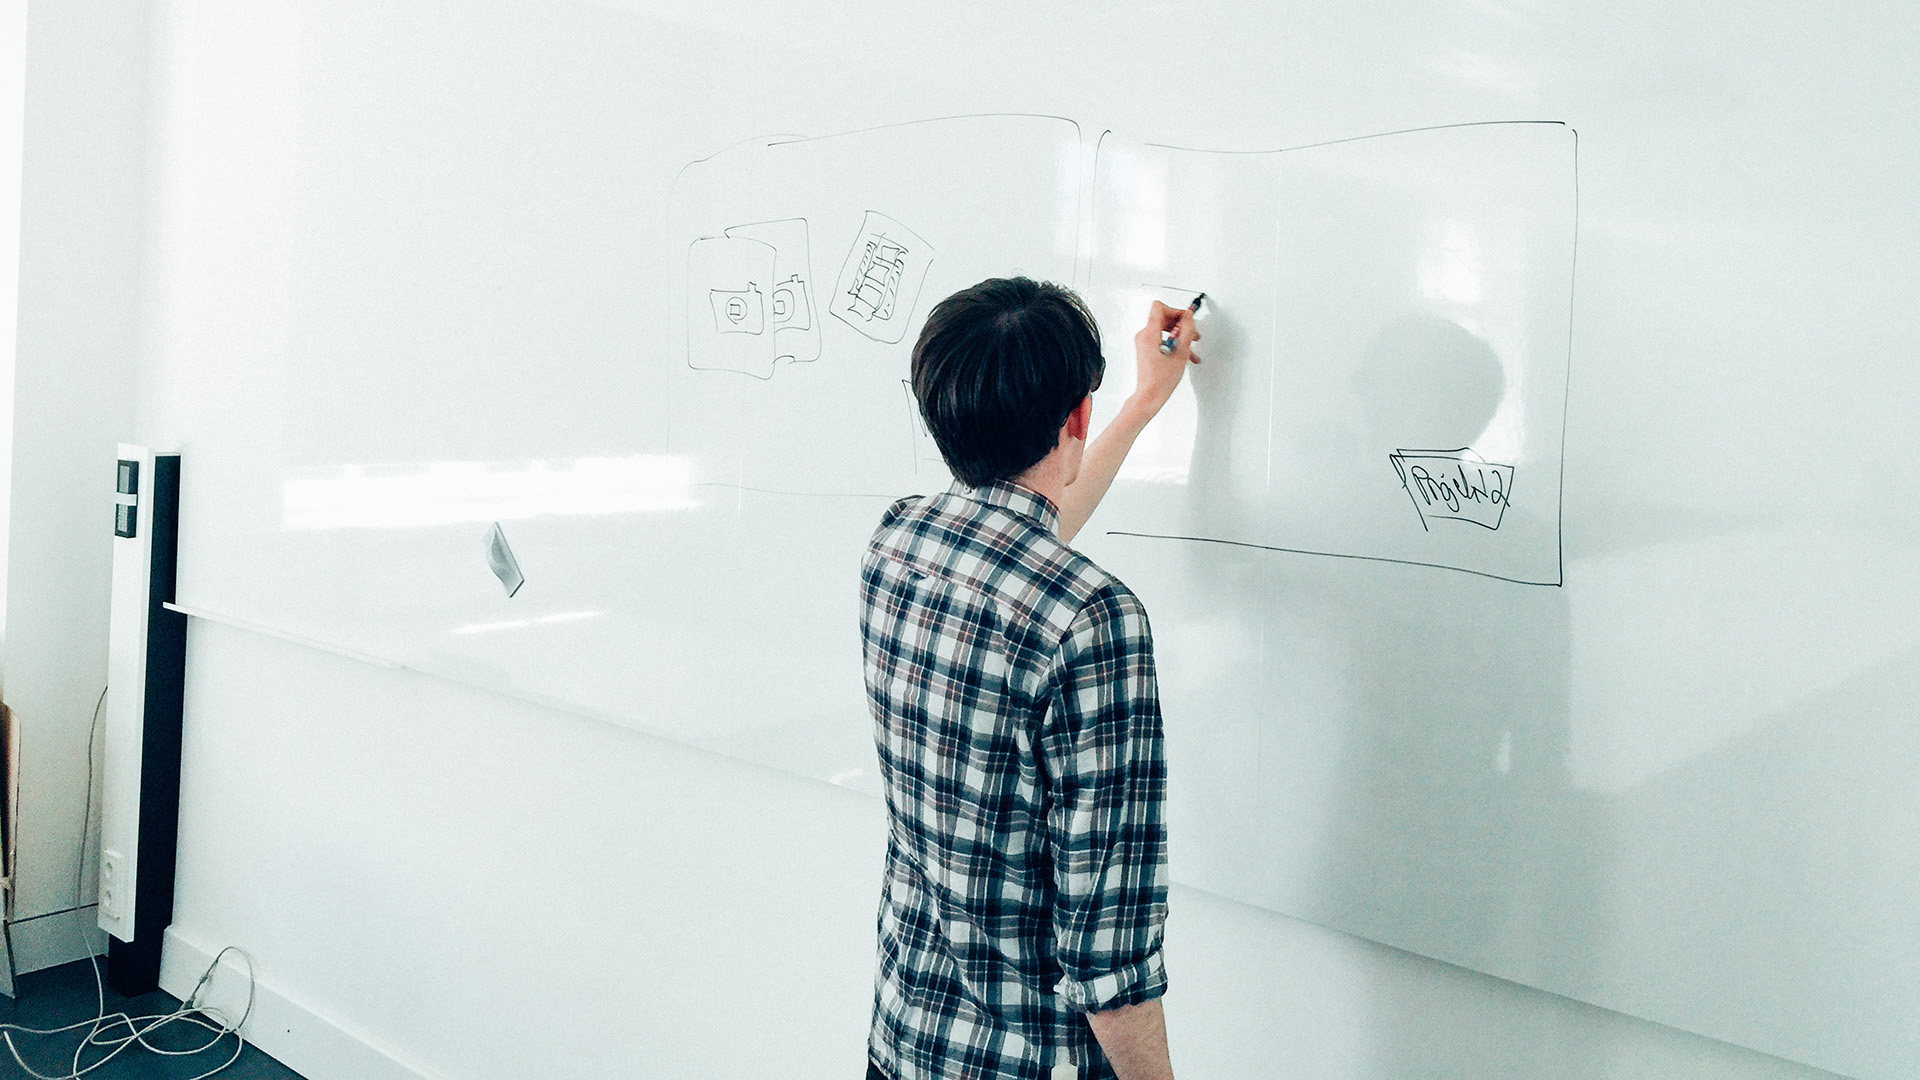 Projekt 2